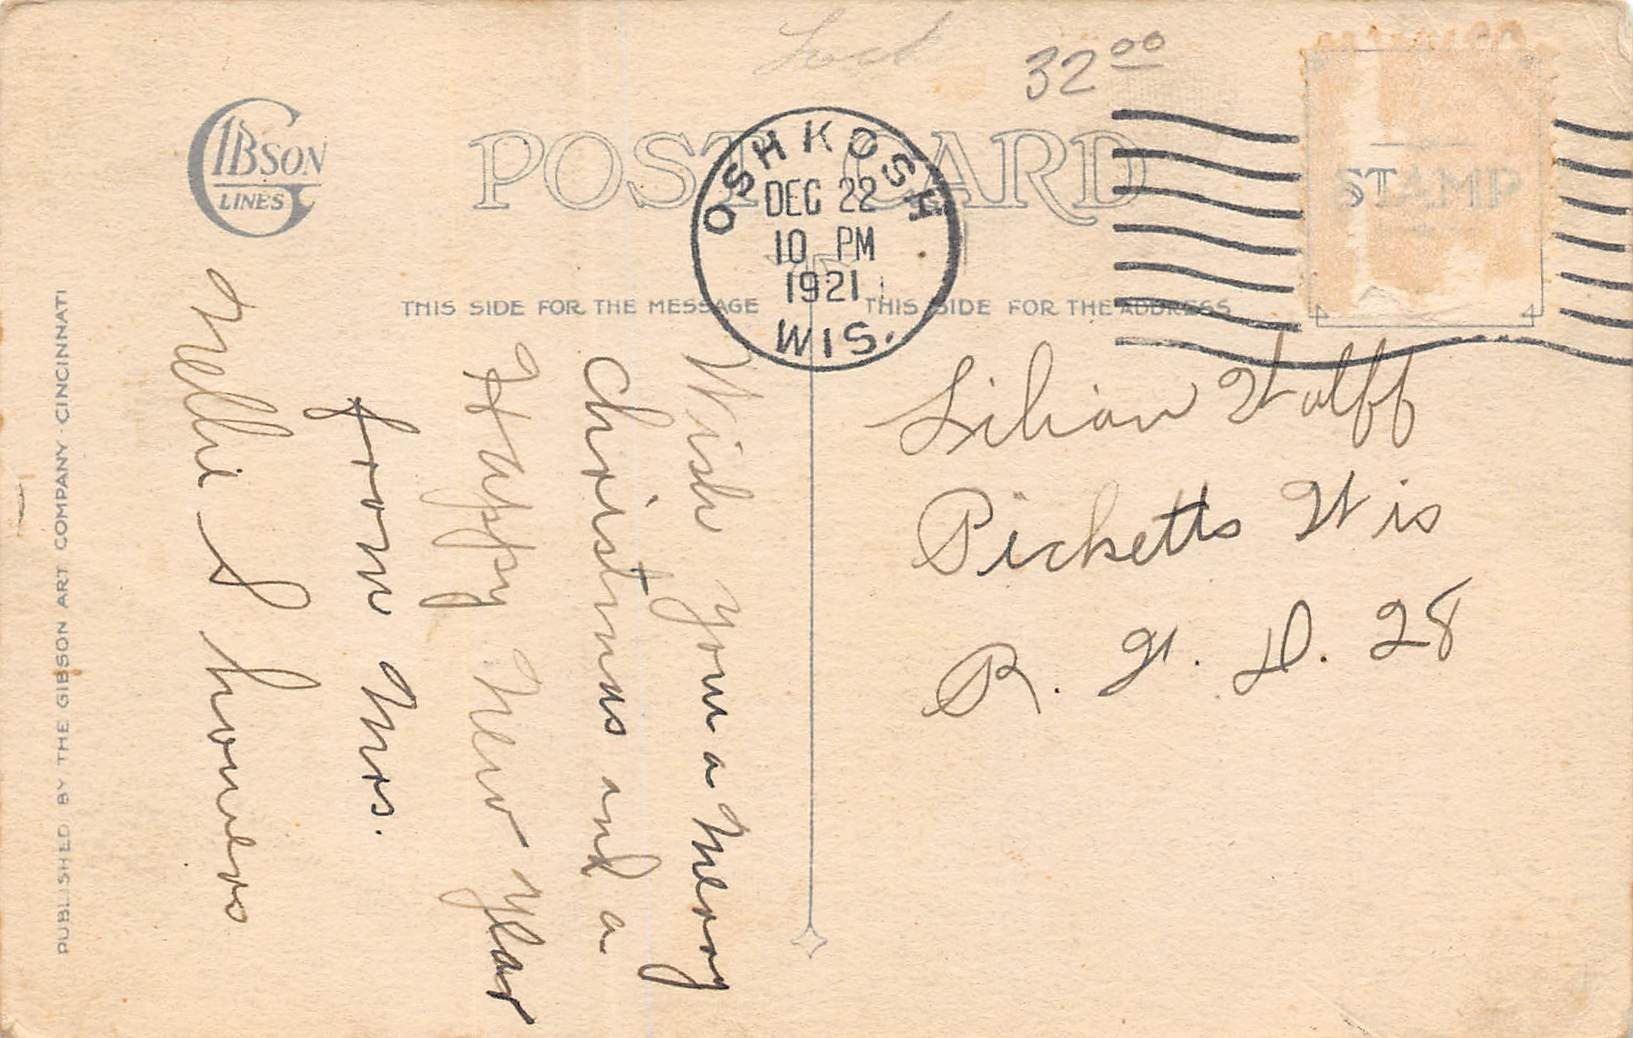 32.00
GIBSON
LINES
POST CARD
OSHKOSH
DEC 22
10 PM
1921
WIS.
STAMP
THIS SIDE FOR THE MESSAGE
THIS SIDE FOR THE ADDRESS
Wish you a Merry
Christmas and a
Happy New Year
from Mrs.
Nellie
Lilian Wolff
Picketts Wis
R. F. D. 28
PUBLISHED BY THE GIBSON ART COMPANY CINCINNATI